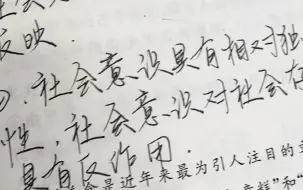 反映.
.社会意识具有相对独
性,社会意识对社会存
具有反作用.
是近年来最为引人注目的